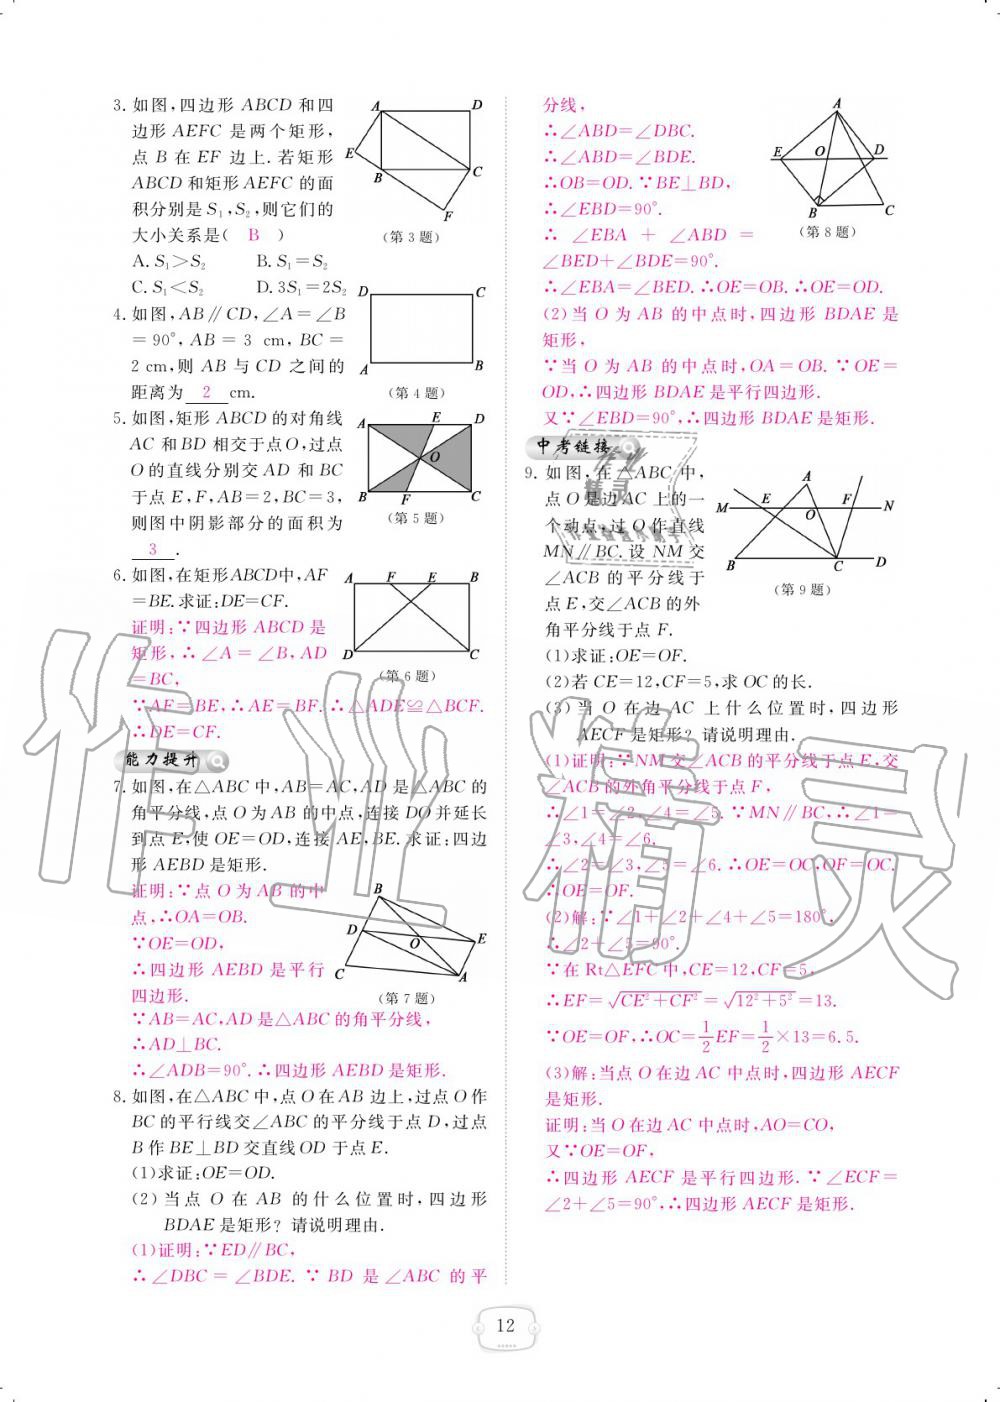 3. 如图,四边形 ABCD 和四
边形 AEFC 是两个矩形,
点 B 在 EF 边上.若矩形
ABCD 和矩形 AEFC 的面
积分别是 S₁,S₂,则它们的
大小关系是( B )
A. S₁>S₂ B. S₁=S₂
C. S₁<S₂ D. 3S₁=2S₂
A D E B C F
(第 3 题)
4. 如图,AB∥CD,∠A=∠B
=90°,AB=3 cm,BC=
2 cm,则 AB 与 CD 之间的
距离为 2 cm.
D C A B
(第 4 题)
5. 如图,矩形 ABCD 的对角线
AC 和 BD 相交于点 O,过点
O 的直线分别交 AD 和 BC
于点 E,F,AB=2,BC=3,
则图中阴影部分的面积为
3 .
A E D O B F C
(第 5 题)
6. 如图,在矩形ABCD中,AF
=BE.求证:DE=CF.
证明:∵四边形 ABCD 是
矩形,∴∠A=∠B,AD
=BC,
∵AF=BE,∴AE=BF.∴△ADE≌△BCF.
∴DE=CF.
A F E B D C
(第 6 题)
能力提升
7. 如图,在△ABC 中,AB=AC,AD 是△ABC 的
角平分线,点 O 为 AB 的中点,连接 DO 并延长
到点 E,使 OE=OD,连接 AE,BE.求证:四边
形 AEBD 是矩形.
证明:∵点 O 为 AB 的中
点,∴OA=OB.
∵OE=OD,
∴四边形 AEBD 是平行
四边形.
∵AB=AC,AD 是△ABC 的角平分线,
∴AD⊥BC.
∴∠ADB=90°.∴四边形 AEBD 是矩形.
B D O E C A
(第 7 题)
8. 如图,在△ABC 中,点 O 在 AB 边上,过点 O 作
BC 的平行线交∠ABC 的平分线于点 D,过点
B 作 BE⊥BD 交直线 OD 于点 E.
(1)求证:OE=OD.
(2)当点 O 在 AB 的什么位置时,四边形
BDAE 是矩形?请说明理由.
(1)证明:∵ED∥BC,
∴∠DBC=∠BDE.∵BD 是∠ABC 的平
分线,
∴∠ABD=∠DBC.
∴∠ABD=∠BDE.
∴OB=OD.∵BE⊥BD,
∴∠EBD=90°.
∴∠EBA+∠ABD=
∠BED+∠BDE=90°.
∴∠EBA=∠BED.∴OE=OB.∴OE=OD.
A E O D B C
(第 8 题)
(2)当 O 为 AB 的中点时,四边形 BDAE 是
矩形,
∵当 O 为 AB 的中点时,OA=OB.∵OE=
OD,∴四边形 BDAE 是平行四边形.
又∵∠EBD=90°,∴四边形 BDAE 是矩形.
中考链接
9. 如图,在△ABC 中,
点 O 是边 AC 上的一
个动点,过 O 作直线
MN∥BC.设 NM 交
∠ACB 的平分线于
点 E,交∠ACB 的外
角平分线于点 F.
(1)求证:OE=OF.
(2)若 CE=12,CF=5,求 OC 的长.
(3)当 O 在边 AC 上什么位置时,四边形
AECF 是矩形?请说明理由.
A M E O F N B C D
(第 9 题)
(1)证明:∵NM 交∠ACB 的平分线于点 E,交
∠ACB 的外角平分线于点 F,
∴∠1=∠2,∠4=∠5.∵MN∥BC,∴∠1=
∠3,∠4=∠6.
∴∠2=∠3,∠5=∠6.∴OE=OC,OF=OC.
∴OE=OF.
(2)解:∵∠1+∠2+∠4+∠5=180°,
∴∠2+∠5=90°.
∵在 Rt△EFC 中,CE=12,CF=5,
∴EF=√(CE²+CF²)=√(12²+5²)=13.
∵OE=OF,∴OC=1/2EF=1/2×13=6.5.
(3)解:当点 O 在边 AC 中点时,四边形 AECF
是矩形.
证明:当 O 在边 AC 中点时,AO=CO,
又∵OE=OF,
∴四边形 AECF 是平行四边形.∵∠ECF=
∠2+∠5=90°,∴四边形 AECF 是矩形.
12
作业精灵